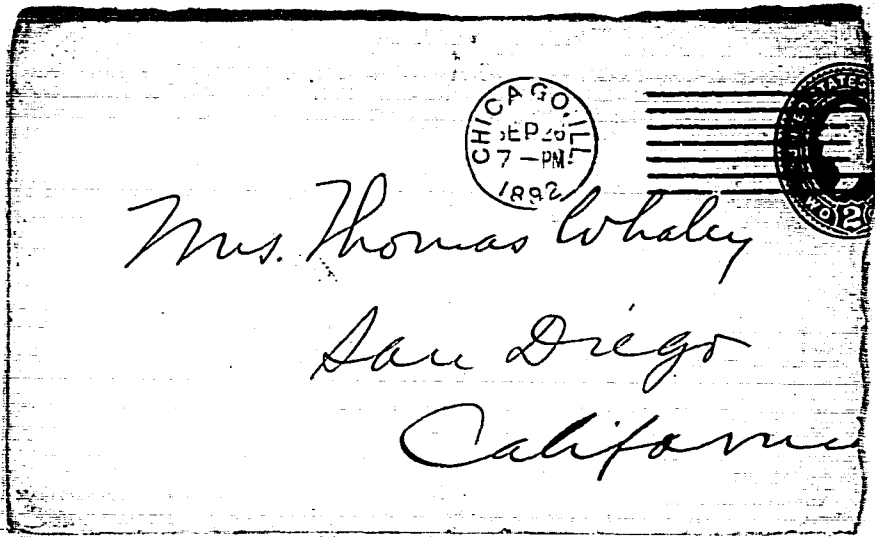 CHICAGO, ILL.
SEP 26
7 — PM
1892
UNITED STATES
TWO 2
Mrs. Thomas Whaley
San Diego
California